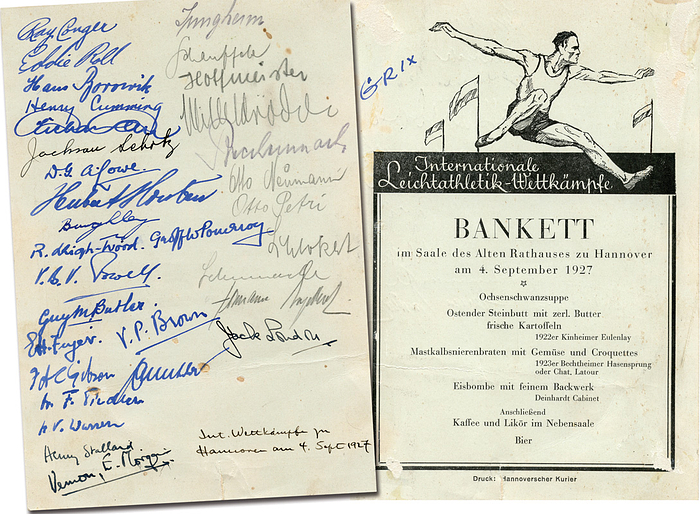 Ray Conger
Eddie Roll
Hans Borowik
Henry Cumming
Jackson Scholz
D.G.A. Lowe
Hubert Houben
Burghley
R. Leigh-Wood. Geoff W Pomeroy
V.B.V. Powell.
Guy M Butler.
E.H. Fryer. V.P. Brown
F.H.C. Gibson
H.V. Warren
Henry Stallard.
Vernon E. Morgan.
Jungheim
Hoffmeister
Otto Neumann
Otto Petri
Jack London
Int. Wettkämpfe zu
Hannover am 4. Sept 1927
GRIX
Internationale
Leichtathletik-Wettkämpfe
BANKETT
im Saale des Alten Rathauses zu Hannover
am 4. September 1927
Ochsenschwanzsuppe
Ostender Steinbutt mit zerl. Butter
frische Kartoffeln
1922er Kinheimer Eulenlay
Mastkalbsnierenbraten mit Gemüse und Croquettes
1923er Bechtheimer Hasensprung
oder Chat. Latour
Eisbombe mit feinem Backwerk
Deinhardt Cabinet
Anschließend
Kaffee und Likör im Nebensaale
Bier
Druck: Hannoverscher Kurier